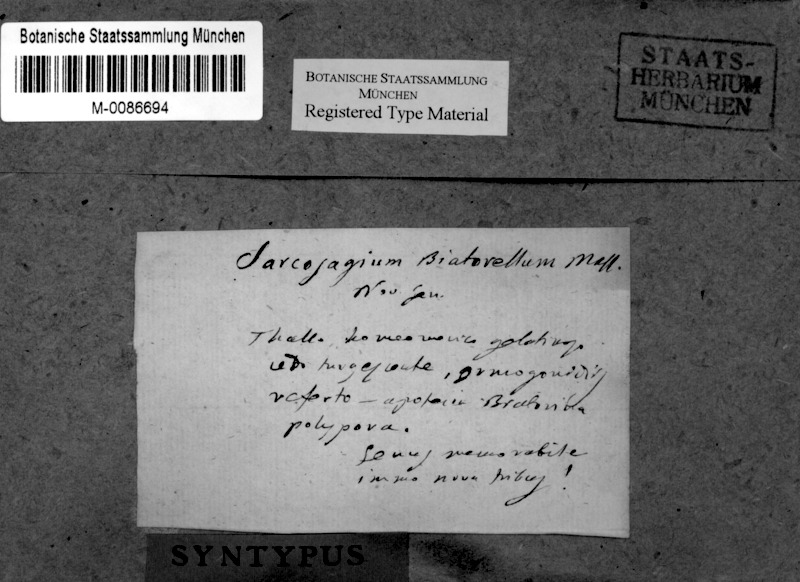 Botanische Staatssammlung München
M-0086694
BOTANISCHE STAATSSAMMLUNG
MÜNCHEN
Registered Type Material
STAATS-
HERBARIUM
MÜNCHEN
Sarcosagium Biatorellum Mass.
Nov gen.
Thallo homeomerico gelatinoso
udo turgescente, gonidiis
referto – apotecia Biatorina
polyspora.
Genus memorabile
immo nova tribus!
SYNTYPUS